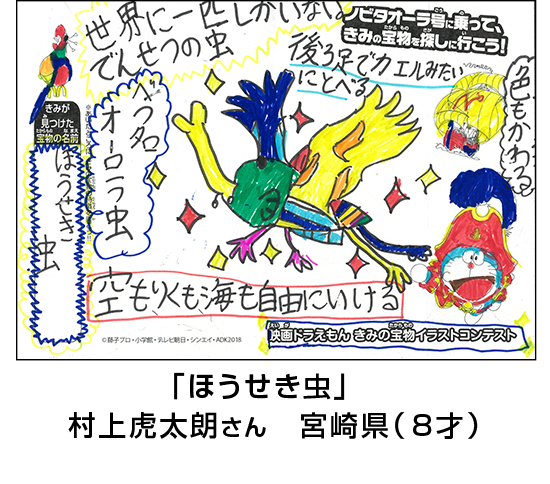 世界に一匹しかいない
でんせつの虫
ノビタオーラ号に乗って、
きみの宝物を探しに行こう!
後ろ足でカエルみたい
にとべる
色もかわる
きみが
見つけた
宝物の名前
ほうせき虫
べつ名
オーロラ虫
空もりくも海も自由にいける
©藤子プロ・小学館・テレビ朝日・シンエイ・ADK2018
映画ドラえもん きみの宝物イラストコンテスト
「ほうせき虫」
村上虎太朗さん 宮崎県(8才)